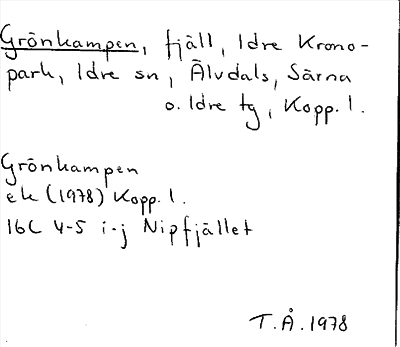 Grönkampen, fjäll, Idre Krono-
park, Idre sn, Älvdals, Särna
o. Idre tg, Kopp. l.
Grönkampen
ek (1978) Kopp. l.
16C 4-5 i-j Nipfjället
T. Å. 1978